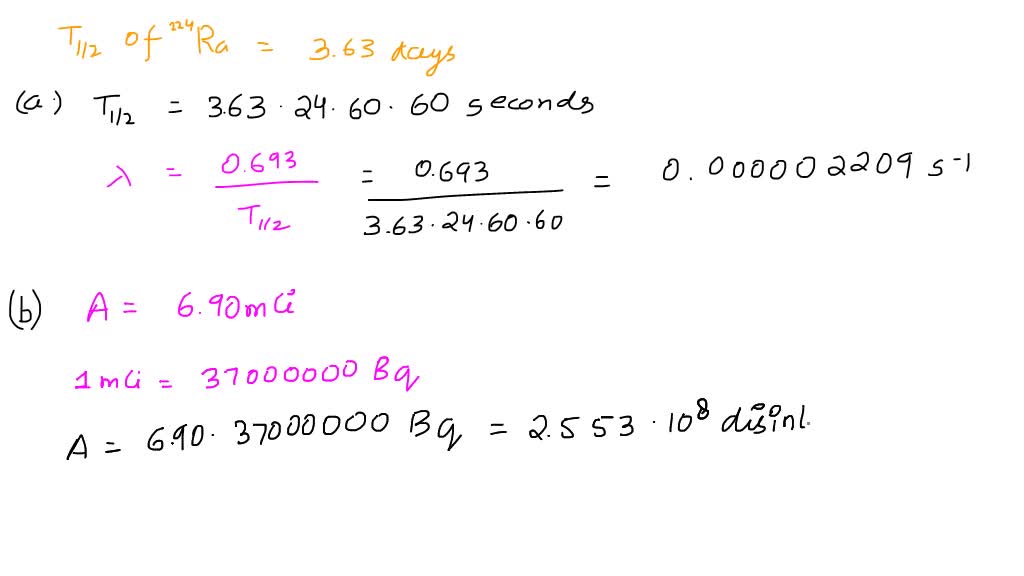 T1/2 of 224Ra = 3.63 days
(a.) T1/2 = 3.63 · 24 · 60 · 60 seconds
λ = 0.693 / T1/2 = 0.693 / 3.63 · 24 · 60 · 60 = 0.000002209 s-1
(b) A = 6.90 mCi
1 mCi = 37000000 Bq
A = 6.90 · 37000000 Bq = 2.553 · 10^8 disinl.